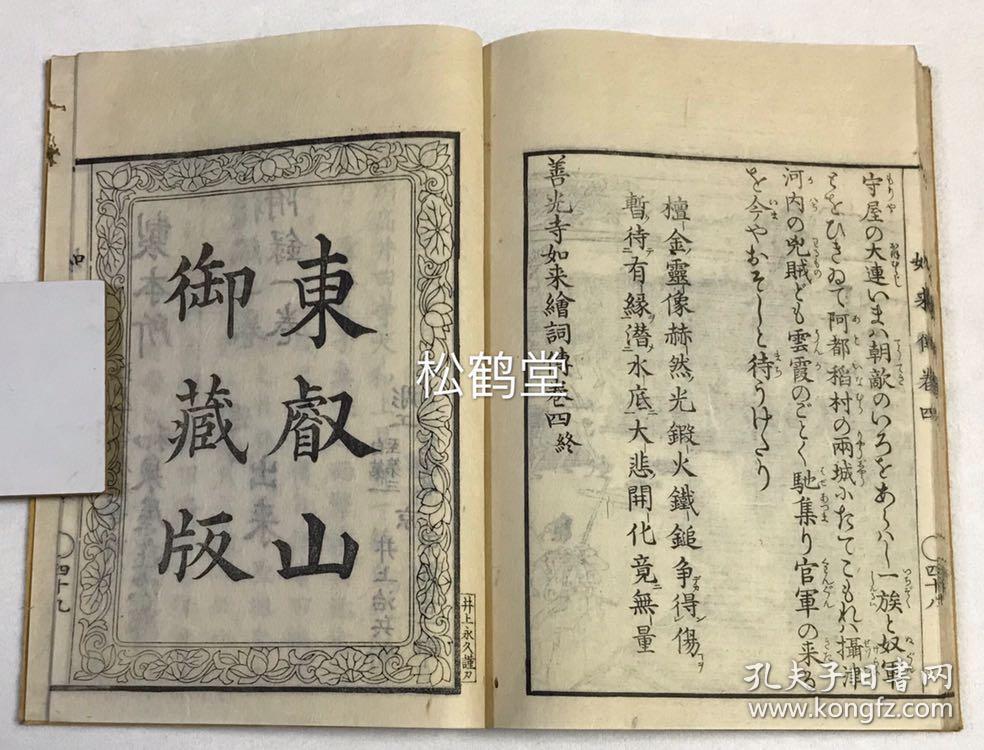 守屋の大連いまハ朝敵のいろをあらハし一族と奴軍
とをひきゐて阿都稲村の兩城にたてこもれハ攝津
河内の兇賊ども雲霞のごとく馳集り官軍の来る
を今やおそしと待うけたり
檀金靈像赫然光鍛火鐵鎚争得傷
暫待有緣潜水底大悲開化竟無量
善光寺如来繪詞傳卷四終
如来傳卷四
四十八
東叡山
御藏版
井上永久謹刀
四十九
松鹤堂
孔夫子旧书网
www.kongfz.com